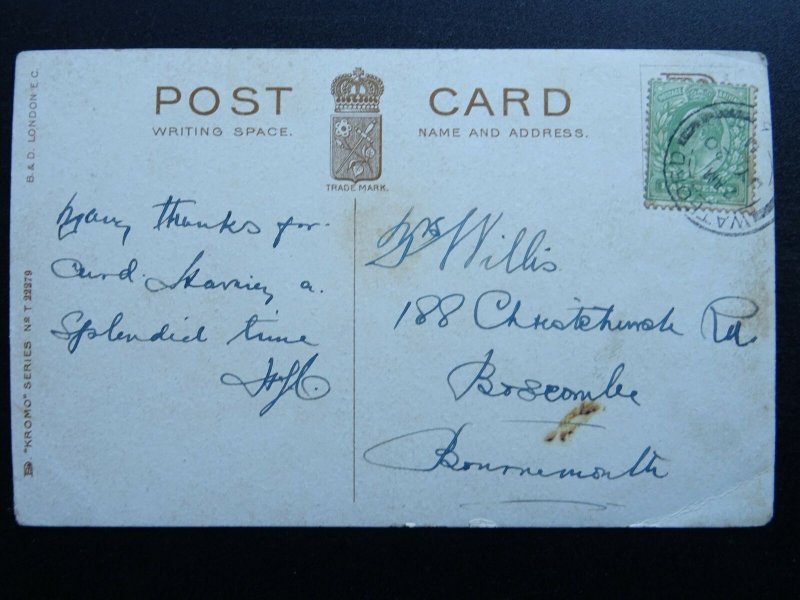 POST CARD
WRITING SPACE.
NAME AND ADDRESS.
TRADE MARK.
B & D. LONDON E.C.
"KROMO" SERIES No T 22279
WATFORD
Many thanks for
Card. Having a
Splendid time
Mrs Willis
188 Christchurch Rd.
Boscombe
Bournemouth